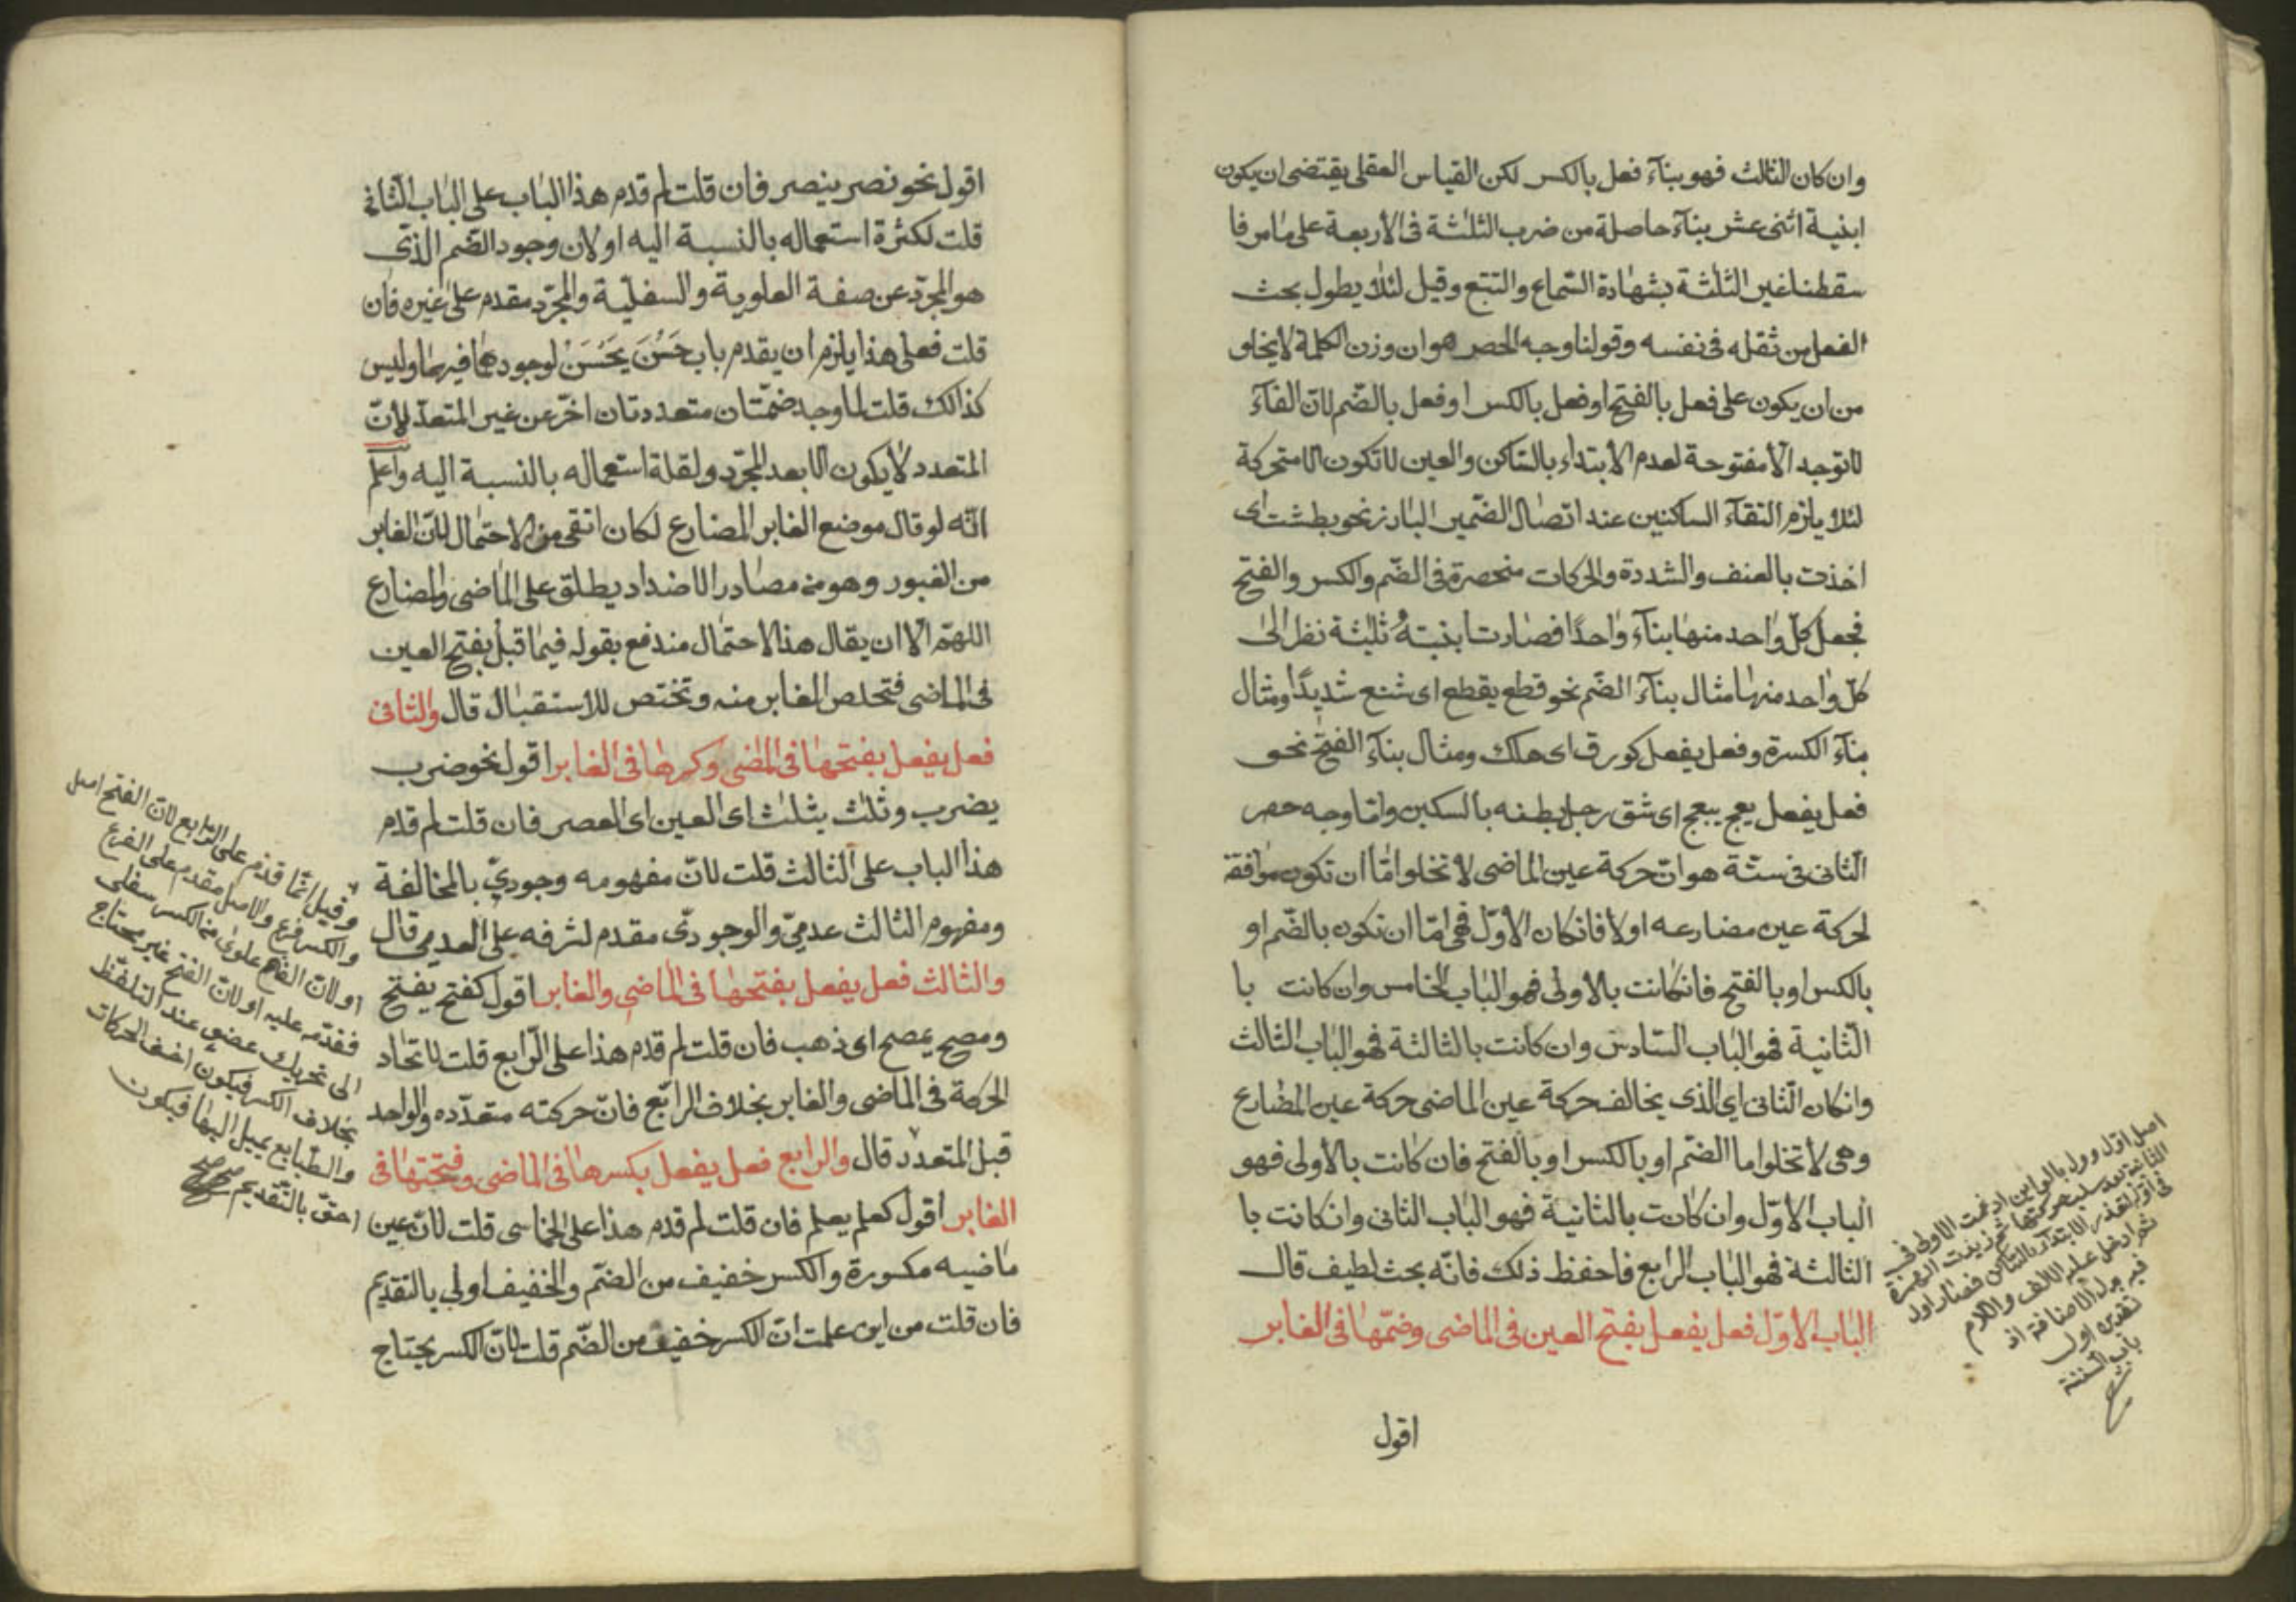 وان كان الثالث فهو بنآء فعل بالكسر لكن القياس العقلى يقتضى ان يكون
ابنية اثنى عشر بنآء حاصلة من ضرب الثلثة فى الأربعة على ما مر فا
سقطنا غير الثلثة بشهادة السّماع والتتبع وقيل لئلا يطول بحث
الفعل من ثقله فى نفسه وقولنا وجه الحصر هو ان وزن الكلمة لا يخلو
من ان يكون على فعل بالفتح او فعل بالكسر او فعل بالضّم لانّ الفآء
لا توجد الّا مفتوحة لعدم الابتداء بالسّاكن والعين لا تكون الا متحركة
لئلا يلزم التقآء الساكنين عند اتصال الضّمير البارز نحو بطشت اى
اخذت بالعنف والشددة والحركات منحصرة فى الضّم والكسر والفتح
فجعل كلّ واحد منها بنآء واحدًا فصارت ابنيتهُ ثلثة نظر الى
كلّ واحد منها مثال بنآء الضّم نحو قطع يقطع اى شنع شديدًا ومثال
بنآء الكسرة وفعل يفعل كورق اى هلك ومثال بنآء الفتح نحو
فعل يفعل بعج يبعج اى شق رجل بطنه بالسكين وامّا وجه حصر
الثانى فى ستّة هو انّ حركة عين الماضى لا تخلوا امّا ان تكون موافقة
لحركة عين مضارعه او لا فان كان الأوّل فهى امّا ان تكون بالضّم او
بالكسر او بالفتح فان كانت بالاولى فهو الباب الخامس وان كانت با
الثّانية فهو الباب السّادس وان كانت بالثالثة فهو الباب الثالث
وان كان الثّانى اى الذى يخالف حركة عين الماضى حركة عين المضارع
وهى لا تخلوا اما الضّم او بالكسر او بالفتح فان كانت بالأولى فهو
الباب الأوّل وان كانت بالثانية فهو الباب الثانى وان كانت با
الثالثة فهو الباب الرابع فاحفظ ذلك فانّه بحث لطيف قال
الباب الاوّل فعل يفعل بفتح العين فى الماضى وضمّها فى الغابر
اقول
اصل اوّل وول بالواين ادغمت الاولى فى
الثانية بعد سلب حركتها ثم زيدت الهمزة
فى اوّله لتعذر الابتدآء بالسّاكن فصار اول
ثم ادخل عليه الالف واللام
فيه بدل الاضافة اذ
تقديره اول
باب الستة
اقول نحو نصر ينصر فان قلت لم قدم هذا الباب على الباب الثانى
قلت لكثرة استعماله بالنسبة اليه او لان وجود الضّم الذى
هو المجرّد عن صفة العلوية والسفليّة والمجرّد مقدم على غيره فان
قلت فعلى هذا يلزم ان يقدم باب حَسُنَ يَحْسُنُ لوجودها فيهما وليس
كذالك قلت لما وجد ضمّتان متعددتان اخّر عن غير المتعدّ لأنّ
المتعدد لا يكون الا بعد المجرّد ولقلة استعماله بالنسبة اليه واعلم
انّه لو قال موضع الغابر المضارع لكان انقى من الاحتمال لانّ الغابر
من الغبور وهو من مصادر الاضداد يطلق على الماضى والمضارع
اللهمّ الّا ان يقال هذا الاحتمال مندفع بقوله فيما قبل بفتح العين
فى الماضى فتخلص الغابر منه وتختص للاستقبال قال والثانى
فعل يفعل بفتحها فى الماضى وكسرها فى الغابر اقول نحو ضرب
يضرب وثلث يثلث اى العين اى العصر فان قلت لم قدم
هذا الباب على الثالث قلت لانّ مفهومه وجودىّ بالمخالفة
ومفهوم الثالث عدمىّ والوجودىّ مقدم لشرفه على العدمى قال
والثالث فعل يفعل بفتحها فى الماضى والغابر اقول كفتح يفتح
ومصح يمصح اى ذهب فان قلت لم قدم هذا على الرّابع قلت لاتحاد
الحركة فى الماضى والغابر بخلاف الرابع فانّ حركته متعدّده والواحد
قبل المتعدّد قال والرابع فعل يفعل بكسرها فى الماضى وفتحتها فى
الغابر اقول كعلم يعلم فان قلت لم قدم هذا على الخماسى قلت لانّ عين
ماضيه مكسورة والكسر خفيف من الضّم والخفيف اولى بالتقديم
فان قلت من اين علمت انّ الكسر خفيف من الضّم قلت لانّ الكسر يحتاج
وقيل انّما قدّم على الرابع لانّ الفتح اصل
والكسر فرع والاصل مقدم على الفرع
او لانّ الفتح علوى من الكسر سفلى
فقدّم عليه او لانّ الفتح غير محتاج
الى تحريك عضو عند التلفّظ
بخلاف الكسر فيكون اخف الحركات
والطّبايع يميل اليها فيكون
احقّ بالتّقديم صح صح